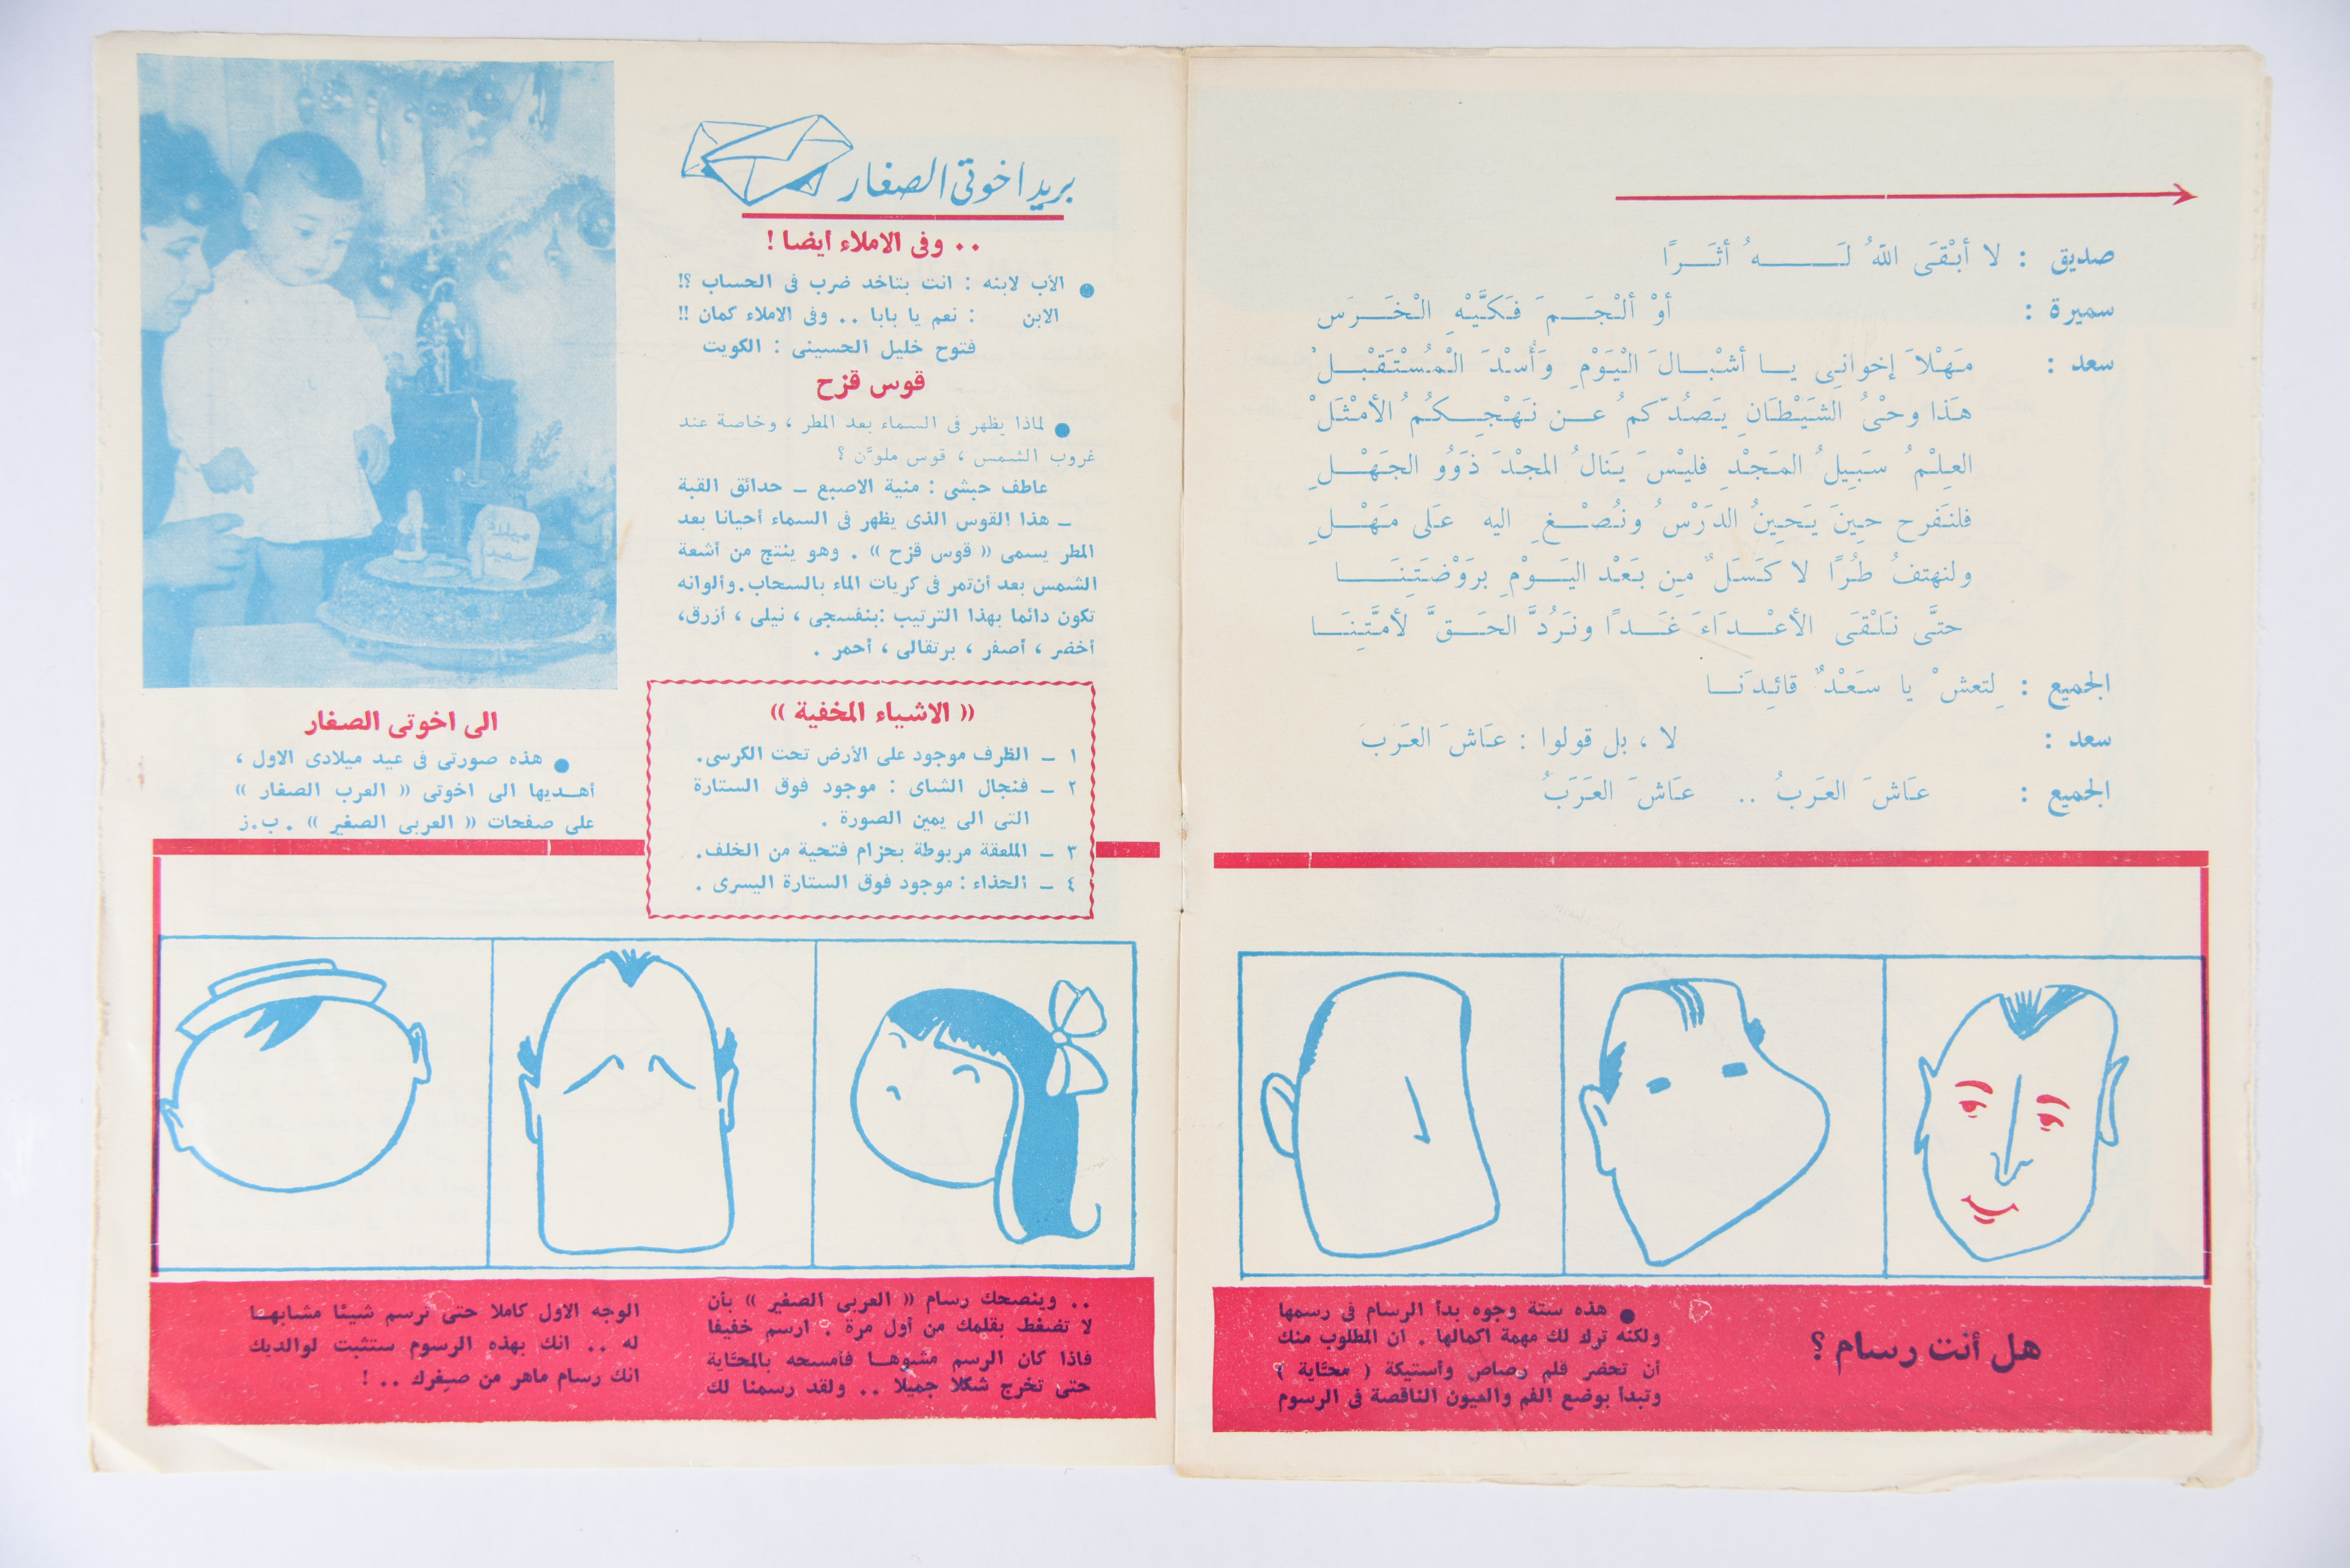 صديق : لا أبْقَى اللهُ لَـــهُ أثَــرًا
سميرة : أوْ ألْجَــمَ فَكَّيْهِ الْخَــرَسَ
سعد : مَهْلاَ إخوانِى يــا أشْبْــالَ الْيَوْمِ وَأُسْدَ الْمُسْتَقْبْــلْ
هَذا وحْىُ الشَيْطَانِ يَصُدّكمُ عــن نَهْجِــكُمُ الأمْثَلْ
العِلْمُ سَبِيلُ المَجْدِ فليْسَ يَنالُ المجْدَ ذَوُو الجَهْــلِ
فلنَفرح حِينَ يَحِينُ الدَرْسُ ونُصْــغِ اليه عَلى مَهْــلِ
ولنهتفُ طُرًا لا كَسَلٌ مِن بَعْد اليَــوْمِ برَوْضَتِنَــا
حتَّى نَلْقَى الأعْــدَاءَ غَــدًا ونَرُدَّ الحَــقَّ لأمَّتِنَــا
الجميع : لِتعشْ يا سَعْدٌ قائِدَنــا
سعد : لا ، بل قولوا : عـَاشَ العَرَبَ
الجميع : عَاشَ العَرَبُ .. عَاشَ العَرَبُ
هل أنت رسام ؟
● هذه ستة وجوه بدأ الرسام فى رسمها
ولكنه ترك لك مهمة اكمالها . ان المطلوب منك
أن تحضر قلم رصاص وأستيكة ( محّاية )
وتبدأ بوضع الفم والعيون الناقصة فى الرسوم
بريد اخوتى الصغار
.. وفى الاملاء ايضا !
● الأب لابنه : انت بتاخد ضرب فى الحساب ؟!
الابن : نعم يا بابا .. وفى الاملاء كمان !!
فتوح خليل الحسينى : الكويت
قوس قزح
● لماذا يظهر فى السماء بعد المطر ، وخاصة عند
غروب الشمس ، قوس ملوَّن ؟
عاطف حبشى : منية الاصبع – حدائق القبة
– هذا القوس الذى يظهر فى السماء أحيانا بعد
المطر يسمى « قوس قزح » . وهو ينتج من أشعة
الشمس بعد أن تمر فى كريات الماء بالسحاب . وألوانه
تكون دائما بهذا الترتيب : بنفسجى ، نيلى ، أزرق ،
أخضر ، أصفر ، برتقالى ، أحمر .
« الاشياء المخفية »
١ – الظرف موجود على الأرض تحت الكرسى .
٢ – فنجال الشاى : موجود فوق الستارة
التى الى يمين الصورة .
٣ – الملعقة مربوطة بحزام فتحية من الخلف .
٤ – الحذاء : موجود فوق الستارة اليسرى .
ميلاد
سعيد
الى اخوتى الصغار
● هذه صورتى فى عيد ميلادى الاول ،
أهــديها الى اخوتى « العرب الصغار »
على صفحات « العربى الصغير » . ب.ز
.. وينصحك رسام « العربى الصغير » بأن
لا تضغط بقلمك من أول مرة . ارسم خفيفا
فاذا كان الرسم مشوهــا فأمسحه بالمحّاية
حتى تخرج شكلا جميلا .. ولقد رسمنا لك
الوجه الاول كاملا حتى ترسم شيئا مشابهــا
له .. انك بهذه الرسوم ستثبت لوالديك
انك رسام ماهر من صغرك .. !